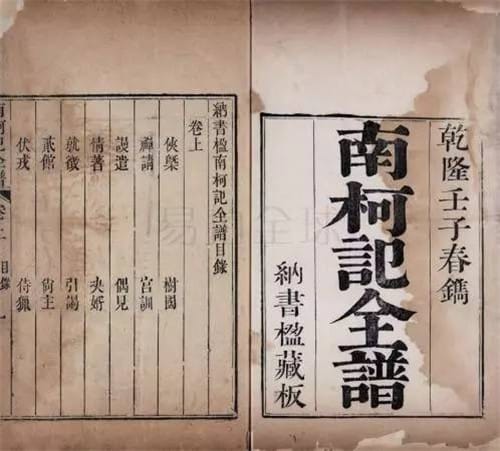 乾隆壬子春鐫
南柯記全譜
納書楹藏板
納書楹南柯記全譜目錄
卷上
俠槩 樹國
禪請 宮訓
謾遣 偶見
情著 決婿
就徵 引謁
貳館 尚主
伏戎 侍獵
南柯記全譜 卷上 目錄 一